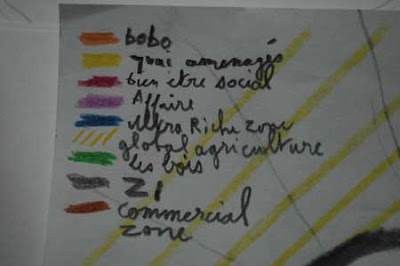 bobo
quai amenagés
bien être social
Affaire
ultra Riche zone
global agriculture
les bois
ZI
commercial
zone